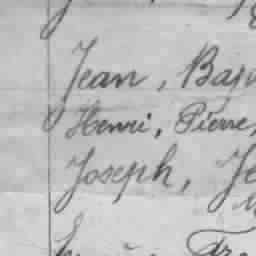 Jean, Bap
Henri, Pierre,
Joseph, Je